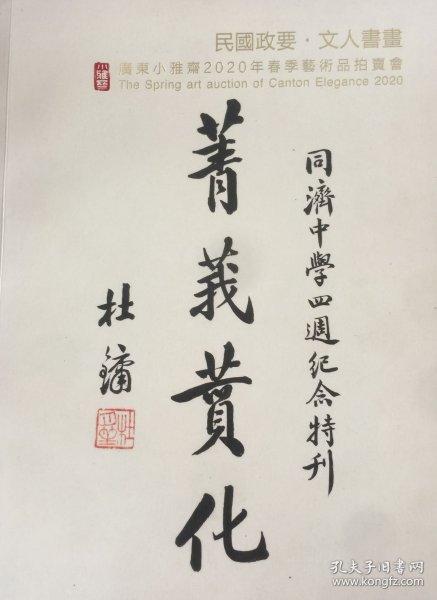 民國政要·文人書畫
小雅齋
廣東小雅齋2020年春季藝術品拍賣會
The Spring art auction of Canton Elegance 2020
同濟中學四週紀念特刊
菁莪賁化
杜鏞
孔夫子旧书网
www.kongfz.com